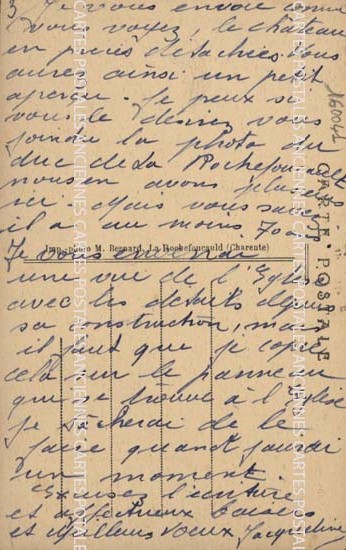 3 Je vous envoie comme
vous voyez, le château
en pièces détachées. Vous
aurez ainsi un petit
aperçu. Je peux si
vous le désirez vous
joindre la photo du
duc de La Rochefoucault
nous en avons plusieurs
ici. Mais vous savez
il a au moins 70 ans
Imp.-photo M. Besnard, La Rochefoucauld (Charente)
Je vous enverrai
une vue de l'Eglise
avec les détails depuis
sa construction, mais
il faut que je copie
cela sur le panneau
qui se trouve à l'église
je tâcherai de le
faire quand j'aurai
un moment.
Excusez l'écriture
et affectueux baisers
et meilleurs voeux Jacqueline
CARTE POSTALE
160042
CARTES POSTALES ANCIENNES